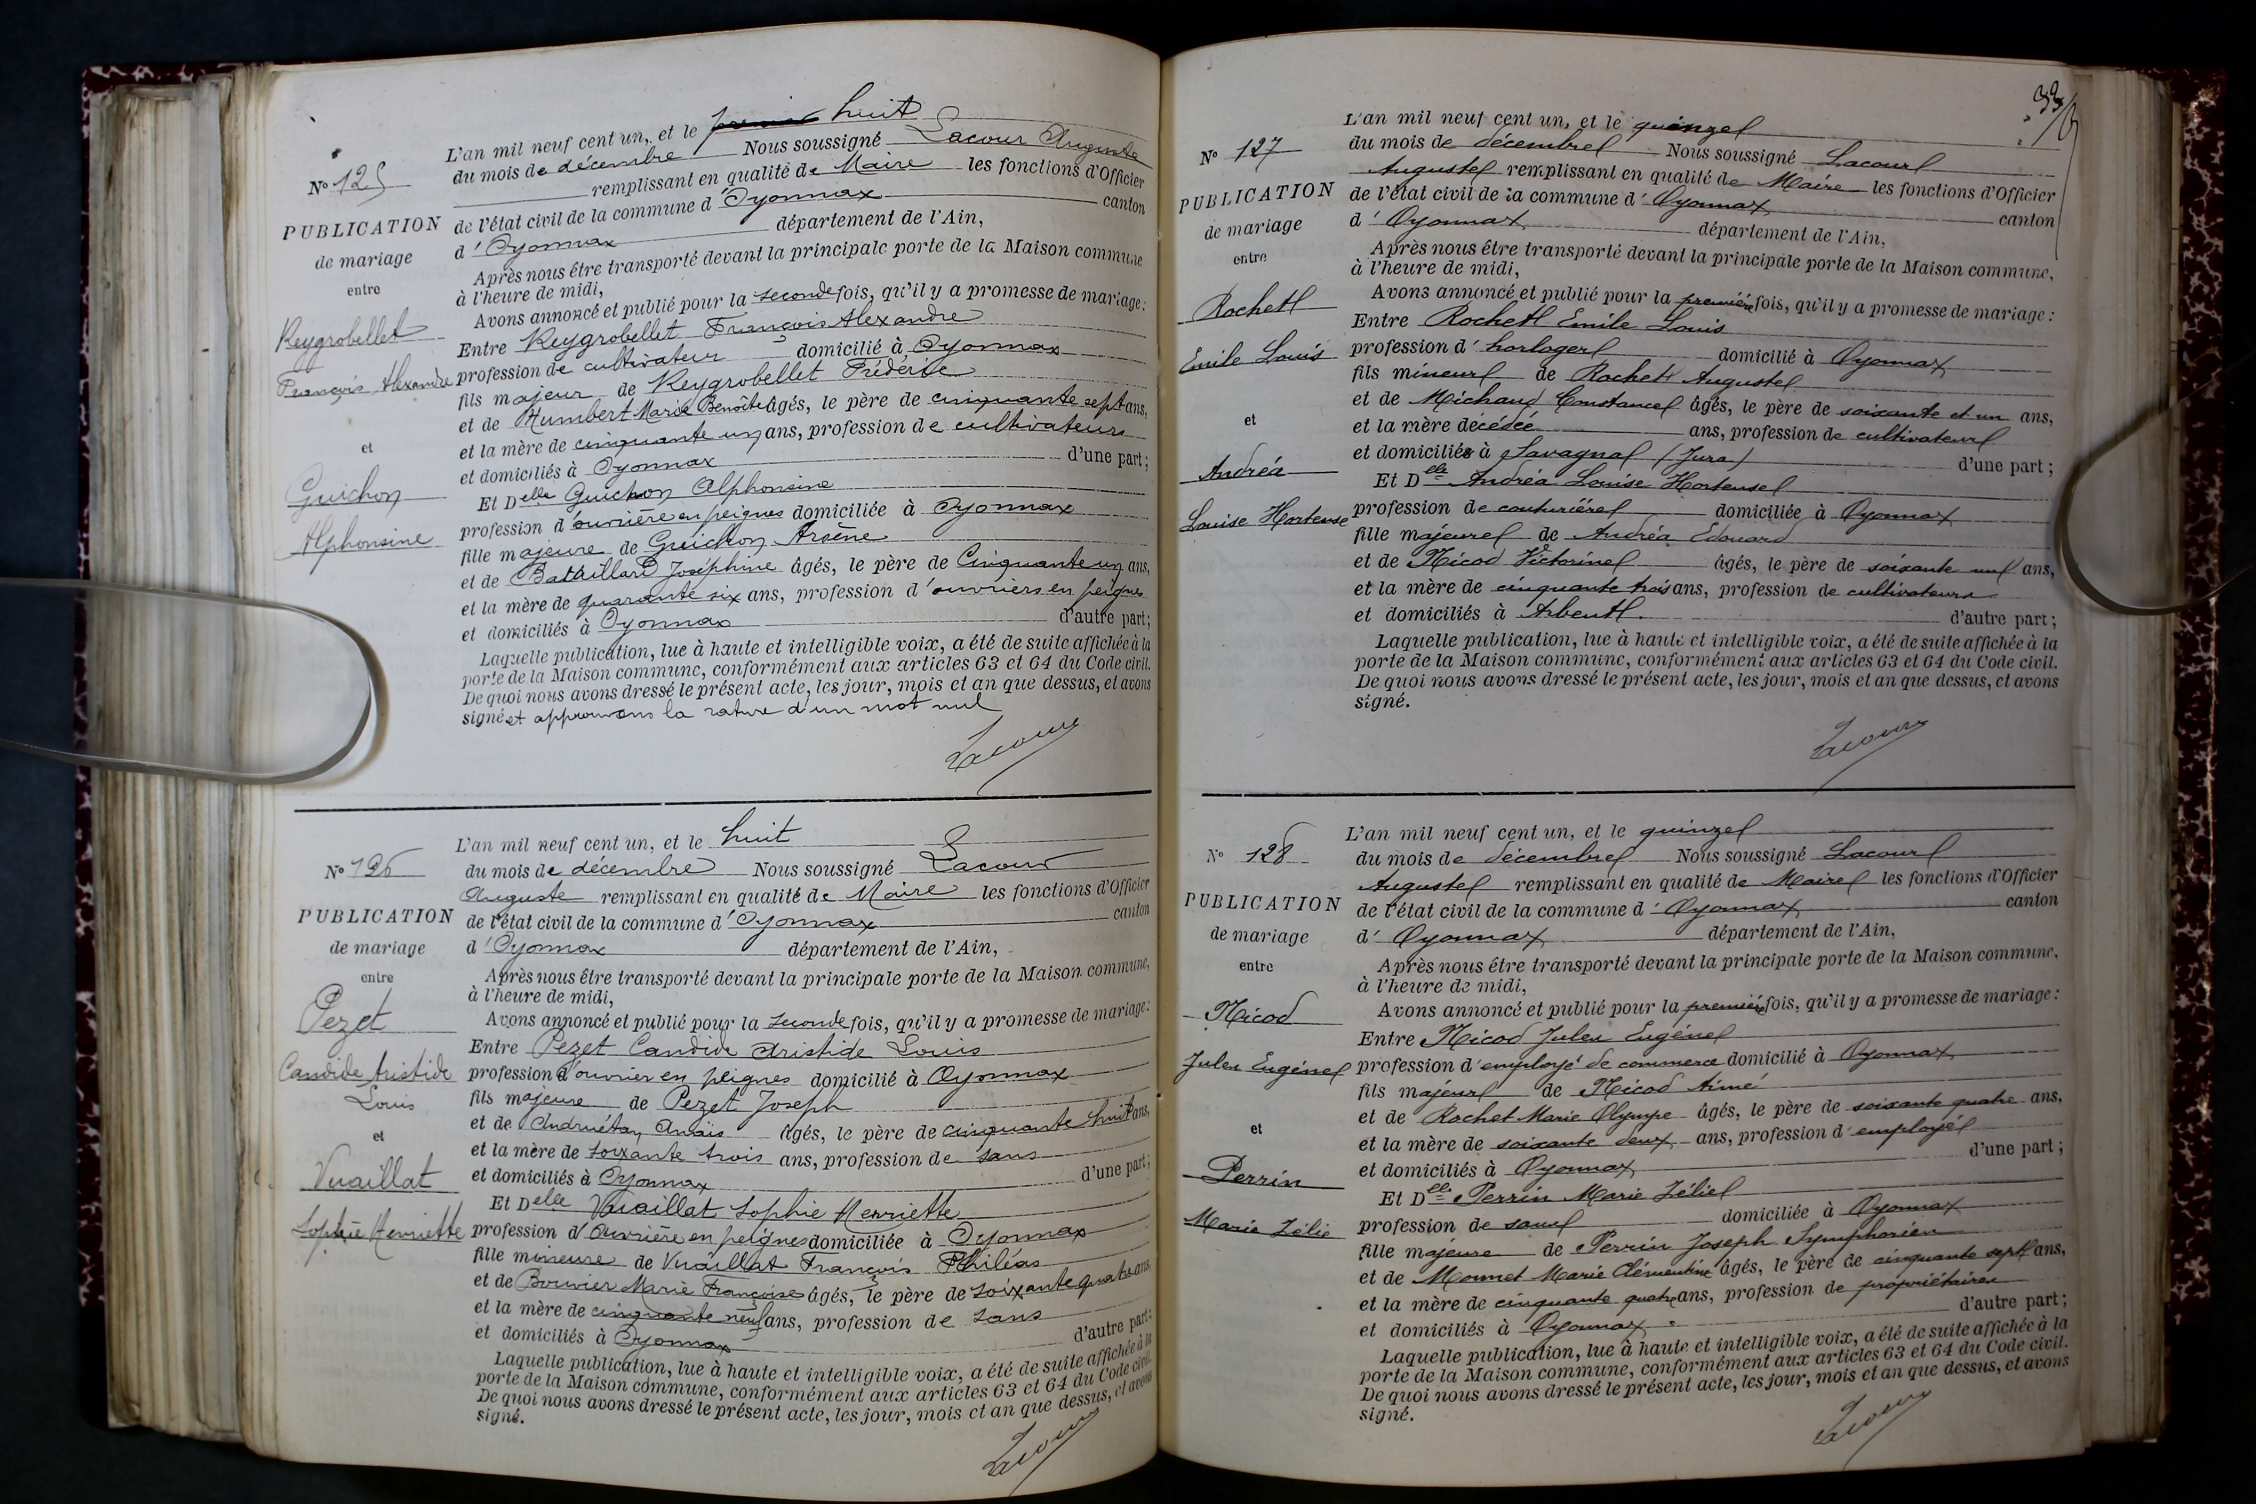 N° 125
PUBLICATION
de mariage
entre
Reygrobellet
François Alexandre
et
Guichon
Alphonsine
L'an mil neuf cent un, et le premier huit
du mois de décembre Nous soussigné Lacour Auguste
remplissant en qualité de Maire les fonctions d'Officier
de l'état civil de la commune d'Oyonnax canton
d'Oyonnax département de l'Ain,
Après nous être transporté devant la principale porte de la Maison commune
à l'heure de midi,
Avons annoncé et publié pour la seconde fois, qu'il y a promesse de mariage:
Entre Reygrobellet François Alexandre
profession de cultivateur domicilié à Oyonnax
fils majeur de Reygrobellet Frédéric
et de Humbert Marie Benoîte âgés, le père de cinquante sept ans,
et la mère de cinquante un ans, profession de cultivateurs
et domiciliés à Oyonnax d'une part;
Et Delle Guichon Alphonsine
profession d'ouvrière en peignes domiciliée à Oyonnax
fille majeure de Guichon Arsène
et de Bataillard Joséphine âgés, le père de Cinquante un ans,
et la mère de quarante six ans, profession d'ouvriers en peignes
et domiciliés à Oyonnax d'autre part;
Laquelle publication, lue à haute et intelligible voix, a été de suite affichée à la
porte de la Maison commune, conformément aux articles 63 et 64 du Code civil.
De quoi nous avons dressé le présent acte, les jour, mois et an que dessus, et avons
signé et approuvons la rature d'un mot nul
Lacour
N° 126
PUBLICATION
de mariage
entre
Pezet
Candide Aristide
Louis
et
Vuaillat
Sophie Henriette
L'an mil neuf cent un, et le huit
du mois de décembre Nous soussigné Lacour
Auguste remplissant en qualité de Maire les fonctions d'Officier
de l'état civil de la commune d'Oyonnax canton
d'Oyonnax département de l'Ain,
Après nous être transporté devant la principale porte de la Maison commune,
à l'heure de midi,
Avons annoncé et publié pour la seconde fois, qu'il y a promesse de mariage:
Entre Pezet Candide Aristide Louis
profession d'ouvrier en peignes domicilié à Oyonnax
fils majeure de Pezet Joseph
et de Andruétan Anaïs âgés, le père de cinquante huit ans,
et la mère de soixante trois ans, profession de sans
et domiciliés à Oyonnax d'une part;
Et Delle Vuaillat Sophie Henriette
profession d'Ouvrière en peignes domiciliée à Oyonnax
fille mineure de Vuaillat François Philéas
et de Bouvier Marie Françoise âgés, le père de soixante quatre ans,
et la mère de cinquante neuf ans, profession de sans
et domiciliés à Oyonnax d'autre part;
Laquelle publication, lue à haute et intelligible voix, a été de suite affichée à la
porte de la Maison commune, conformément aux articles 63 et 64 du Code civil.
De quoi nous avons dressé le présent acte, les jour, mois et an que dessus, et avons
signé.
Lacour
33
N° 127
PUBLICATION
de mariage
entre
Rochet
Emile Louis
et
Andréa
Louise Hortense
L'an mil neuf cent un, et le quinze
du mois de décembre Nous soussigné Lacour
Auguste remplissant en qualité de Maire les fonctions d'Officier
de l'état civil de la commune d'Oyonnax
d'Oyonnax canton
département de l'Ain,
Après nous être transporté devant la principale porte de la Maison commune,
à l'heure de midi,
Avons annoncé et publié pour la première fois, qu'il y a promesse de mariage:
Entre Rochet Emile Louis
profession d'horloger domicilié à Oyonnax
fils mineur de Rochet Auguste
et de Michaud Constance âgés, le père de soixante et un ans,
et la mère décédée ans, profession de cultivateur
et domiciliés à Savagna (Jura) d'une part;
Et Delle Andréa Louise Hortense
profession de couturière domiciliée à Oyonnax
fille majeure de Andréa Edouard
et de Nicod Victorine âgés, le père de soixante un ans,
et la mère de cinquante trois ans, profession de cultivateurs
et domiciliés à Arbent d'autre part;
Laquelle publication, lue à haute et intelligible voix, a été de suite affichée à la
porte de la Maison commune, conformément aux articles 63 et 64 du Code civil.
De quoi nous avons dressé le présent acte, les jour, mois et an que dessus, et avons
signé.
Lacour
N° 128
PUBLICATION
de mariage
entre
Nicod
Jules Eugène
et
Perrin
Marie Zélie
L'an mil neuf cent un, et le quinze
du mois de décembre Nous soussigné Lacour
Auguste remplissant en qualité de Maire les fonctions d'Officier
de l'état civil de la commune d'Oyonnax canton
d'Oyonnax département de l'Ain,
Après nous être transporté devant la principale porte de la Maison commune,
à l'heure de midi,
Avons annoncé et publié pour la première fois, qu'il y a promesse de mariage:
Entre Nicod Jules Eugène
profession d'employé de commerce domicilié à Oyonnax
fils majeur de Nicod Aimé
et de Rochet Marie Olympe âgés, le père de soixante quatre ans,
et la mère de soixante deux ans, profession d'employé
et domiciliés à Oyonnax d'une part;
Et Delle Perrin Marie Zélie
profession de sans domiciliée à Oyonnax
fille majeure de Perrin Joseph Symphorien
et de Monnet Marie Clémentine âgés, le père de cinquante sept ans,
et la mère de cinquante quatre ans, profession de propriétaires
et domiciliés à Oyonnax d'autre part;
Laquelle publication, lue à haute et intelligible voix, a été de suite affichée à la
porte de la Maison commune, conformément aux articles 63 et 64 du Code civil.
De quoi nous avons dressé le présent acte, les jour, mois et an que dessus, et avons
signé.
Lacour